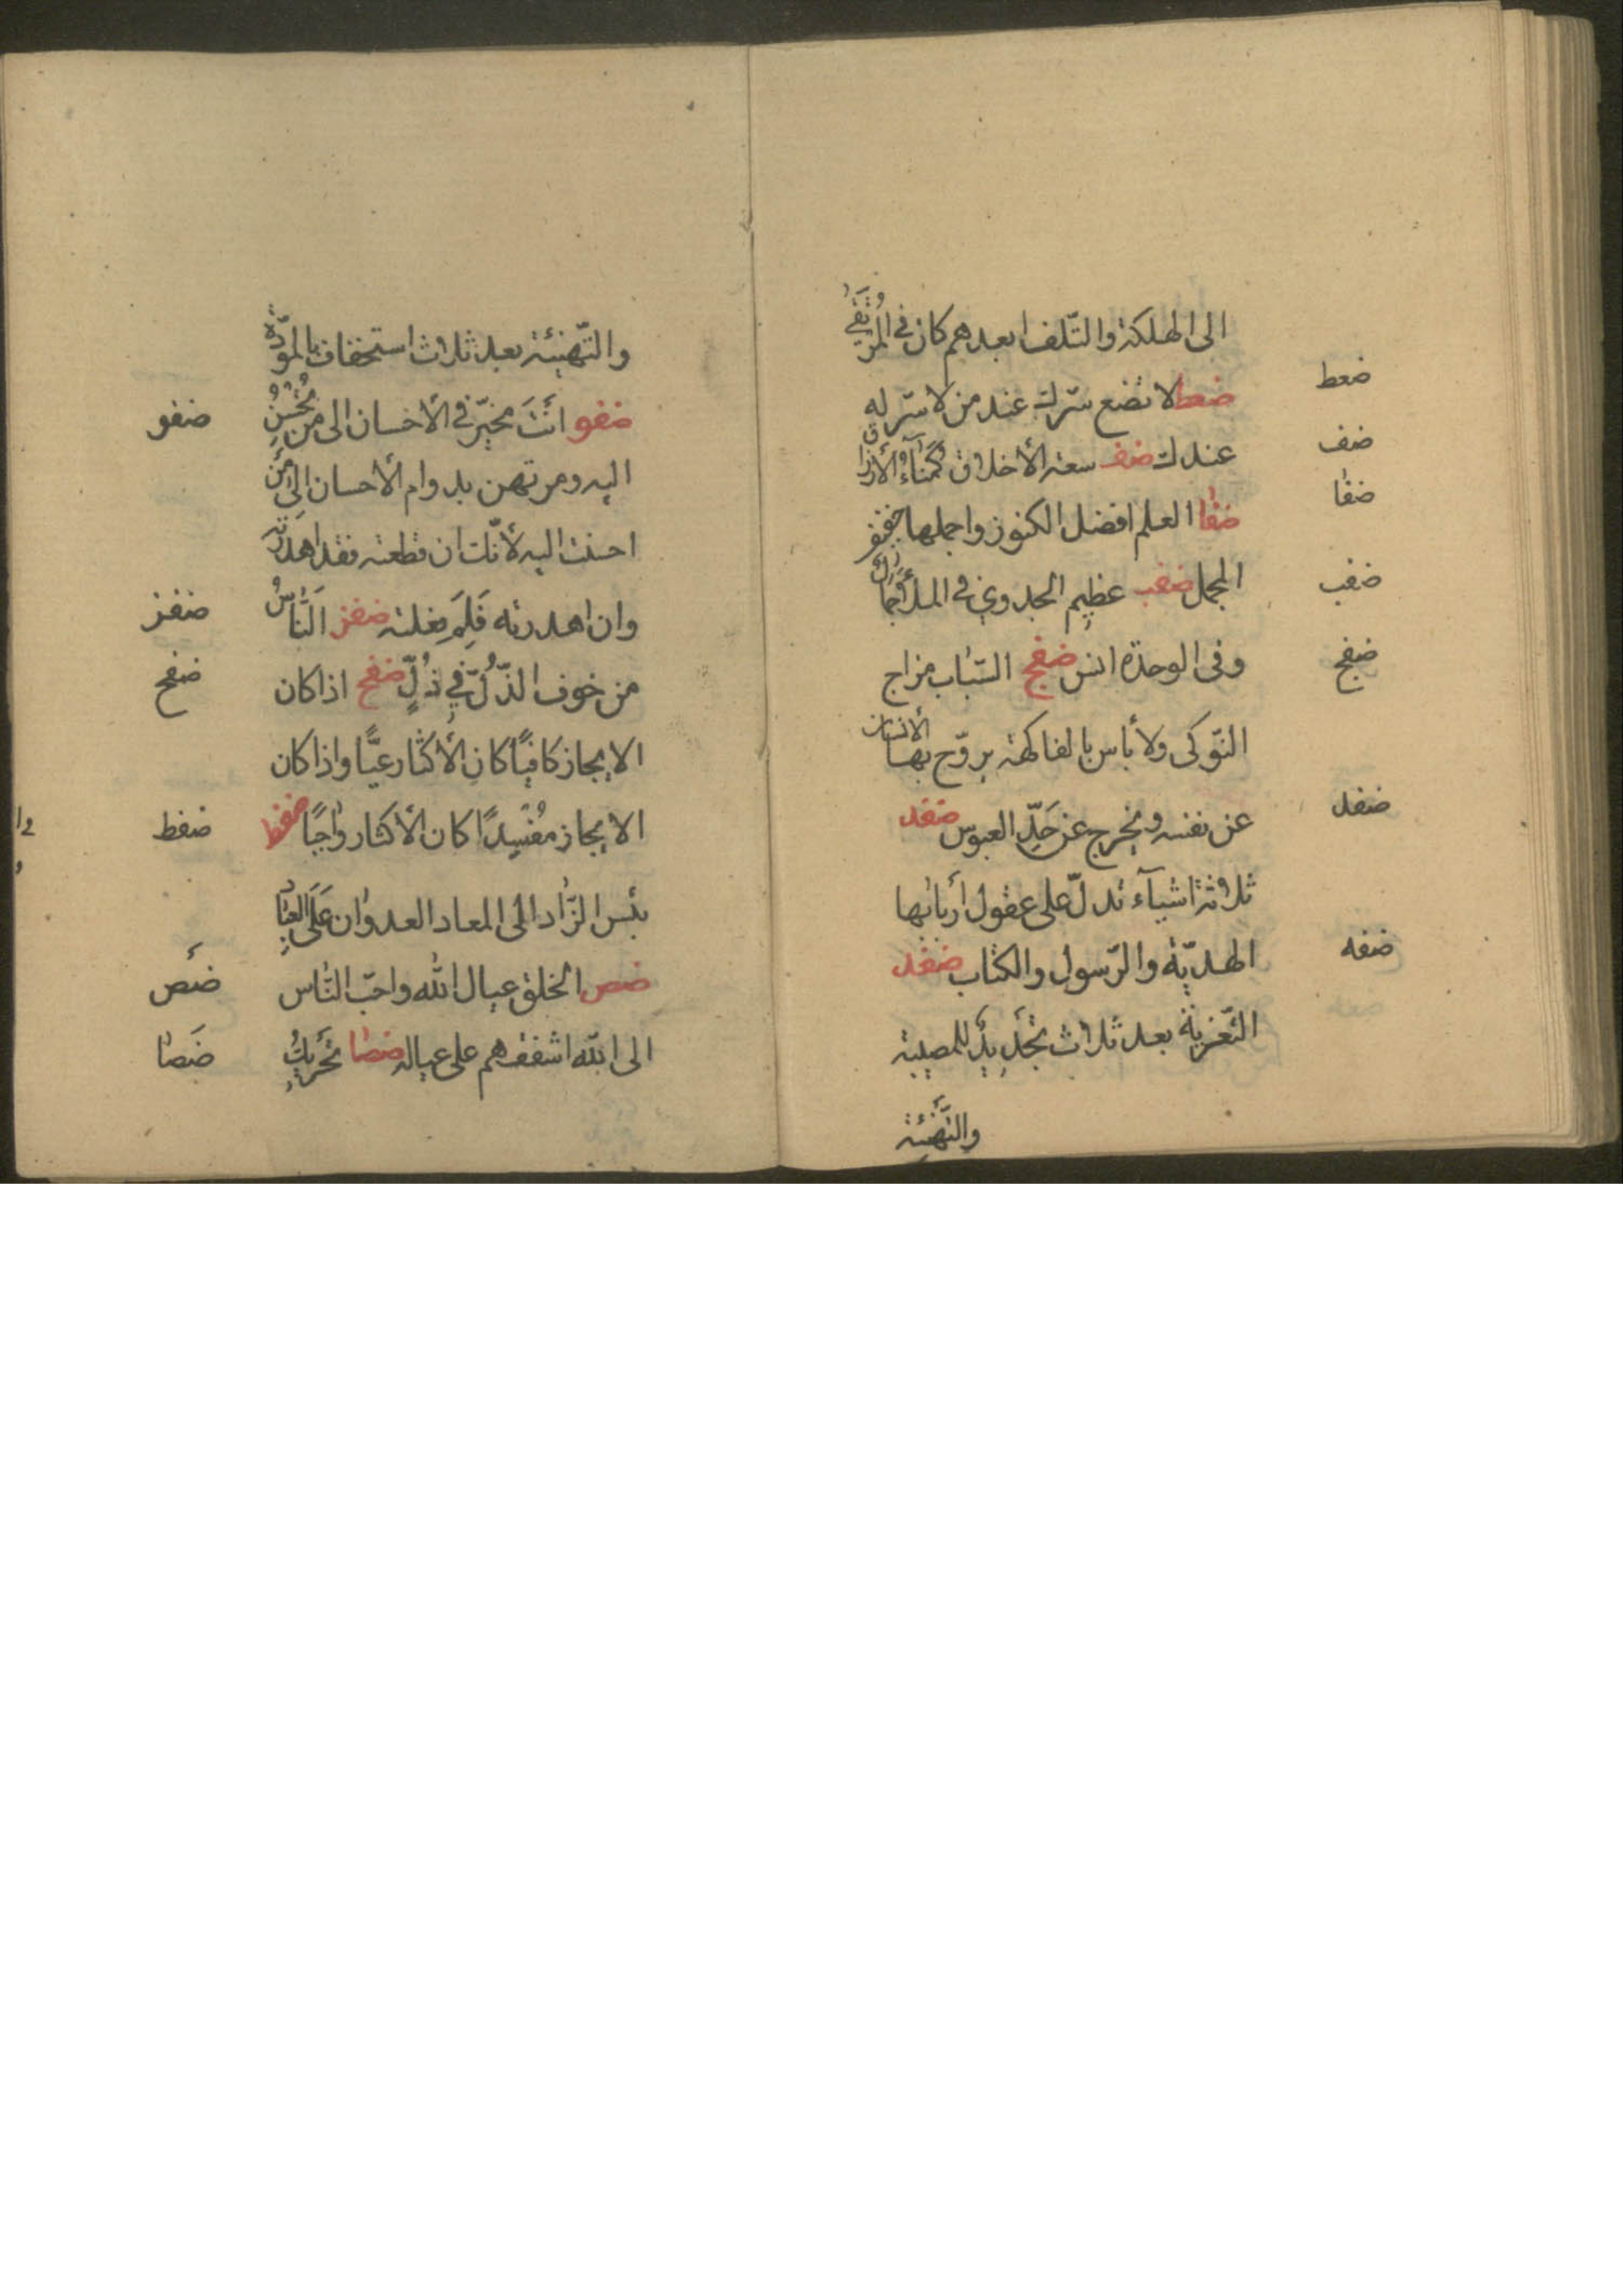 الى الهلكة والتّلف ابعدهم كان فى المرتقى
ضعط
ضعط لا تضع سرّك عند من لا سرّ له
عندك ضف سعة الأخلاق كيمياء الأرزاق
ضف
ضفا العلم افضل الكنوز واجملها خفيف
ضفا
المحمل ضفب عظيم الجدوى فى الملأ جمال
ضفب
وفى الوحدة انس ضفج السّباب مزاج
ضفج
النّوكى ولا بأس بالفاكهة يروّح بها الأنسان
عن نفسه ويخرج عن حدّ العبوس ضفد
ضفد
ثلاثة اشيآء تدلّ على عقول أربابها
الهديّة والرّسول والكتاب ضفه
ضفه
التّعزية بعد ثلاث تجديد للمصيبة
والتّهنئة
والتّهنئة بعد ثلاث استخفاف بالمودّة
ضفو انت مخيّر فى الأحسان الى من تحسن
ضفو
اليه ومرتهن بدوام الأحسان الى من
احسنت اليه لأنّك ان قطعته فقد اهدرته
وان اهدرته فلم فعلته ضفز النّاس
ضفز
من خوف الذّلّ فى ذلّ ضفح اذا كان
ضفح
الايجاز كافيًا كان الأكثار عيًّا واذا كان
الايجاز مقصّرًا كان الأكثار واجبًا ضفط
ضفط
بئس الزّاد الى المعاد العدوان على العباد
ضص الخلق عيال الله واحبّ النّاس
ضص
الى الله اشفقهم على عياله ضصا تحريك
ضصا